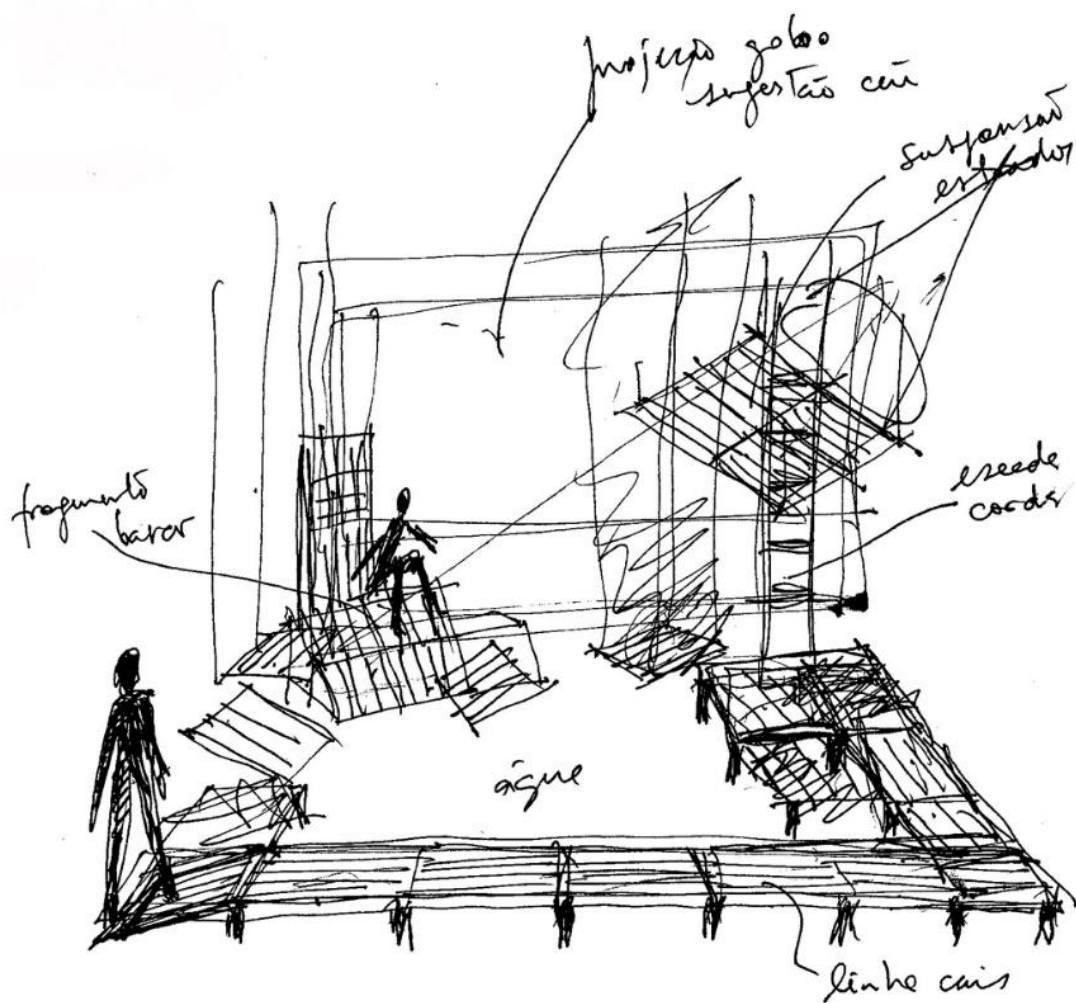 projecção gobo
sugestão céu
suspensão
estrados
escada
corda
fragmento
barco
água
linha cais